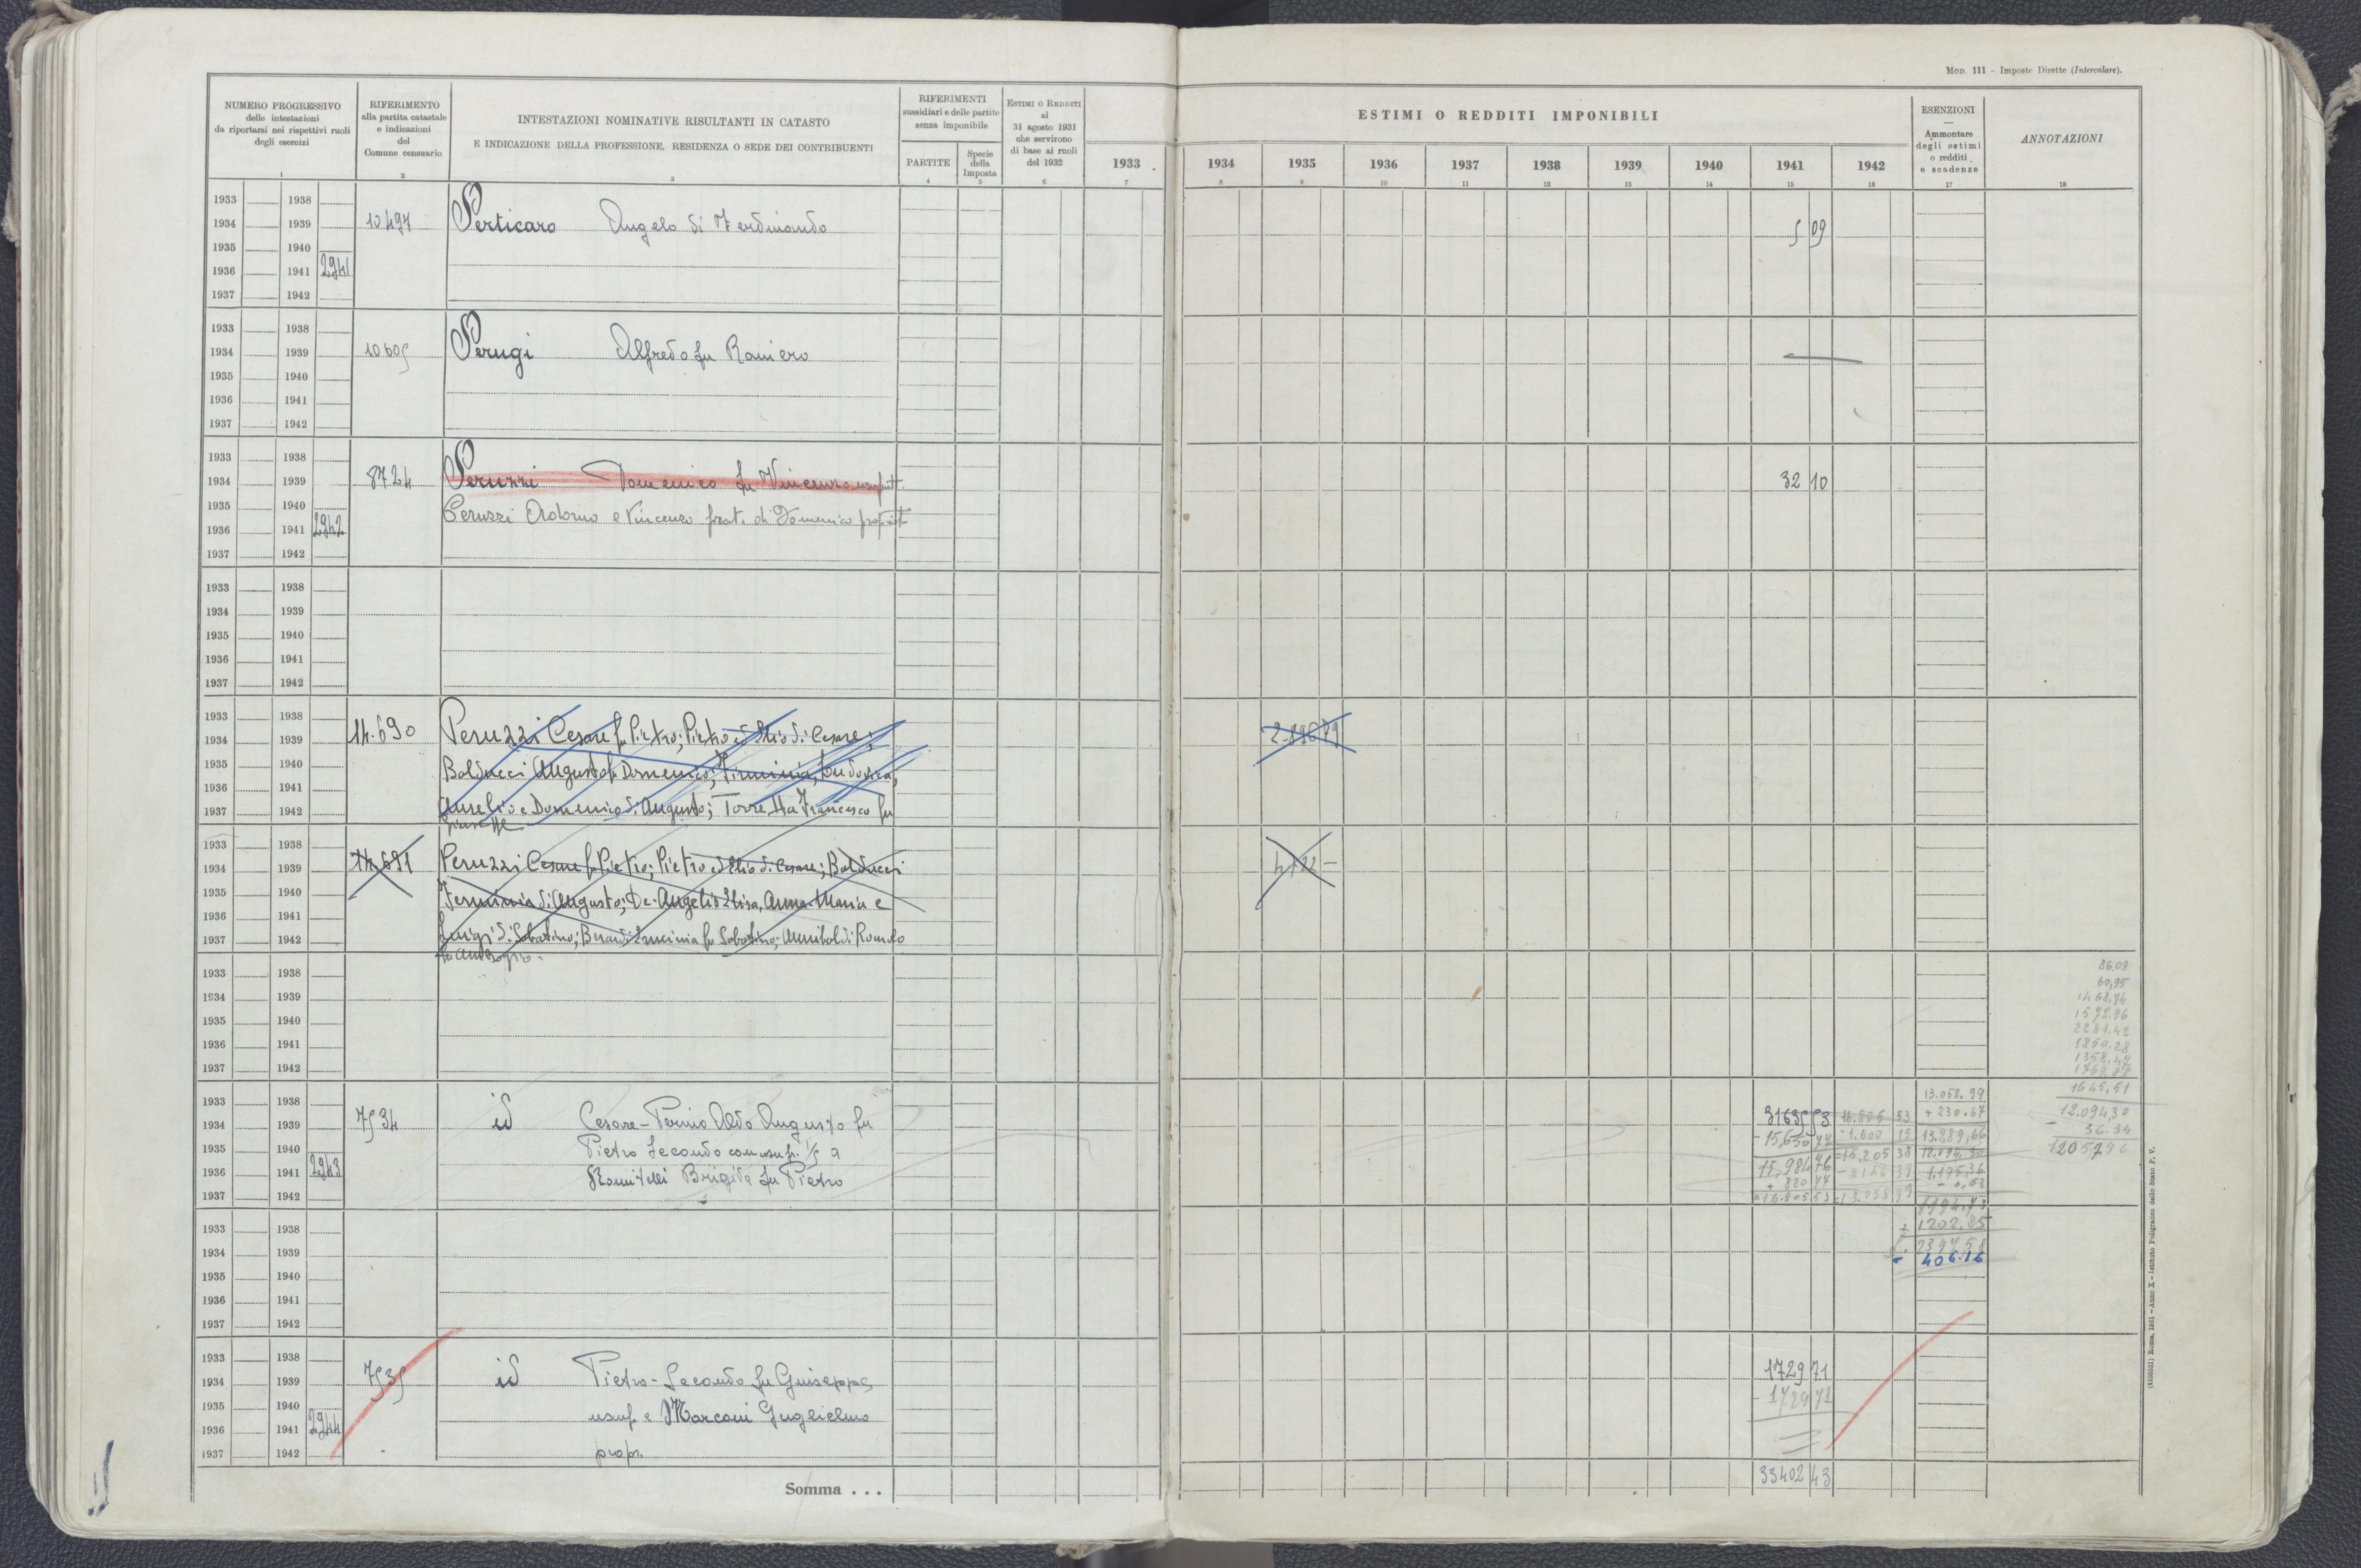 MOD. 111 - Imposte Dirette (Intercalare).
NUMERO PROGRESSIVO
delle intestazioni
da riportarsi nei rispettivi ruoli
degli esercizi
RIFERIMENTO
alla partita catastale
e indicazioni
del
Comune censuario
INTESTAZIONI NOMINATIVE RISULTANTI IN CATASTO
E INDICAZIONE DELLA PROFESSIONE, RESIDENZA O SEDE DEI CONTRIBUENTI
RIFERIMENTI
sussidiari e delle partite
senza imponibile
PARTITE
Specie
della
Imposta
ESTIMI O REDDITI
al
31 agosto 1931
che servirono
di base ai ruoli
del 1932
ESTIMI O REDDITI IMPONIBILI
1933 1934 1935 1936 1937 1938 1939 1940 1941 1942
ESENZIONI
—
Ammontare
degli estimi
o redditi
e scadenze
ANNOTAZIONI
1 2 3 4 5 6 7 8 9 10 11 12 13 14 15 16 17 18
1933 1938
1934 1939 10497 Perticaro Angelo di Ferdinando 5 09
1935 1940
1936 1941 2941
1937 1942
1933 1938
1934 1939 10605 Perugi Alfredo fu Raniero —
1935 1940
1936 1941
1937 1942
1933 1938
1934 1939 8724 Peruzzi Domenico fu Vincenzo usufrutt. 32 10
1935 1940 Peruzzi Adorno e Vincenzo frat. di Domenico propriet
1936 1941 2942
1937 1942
1933 1938
1934 1939
1935 1940
1936 1941
1937 1942
1933 1938
1934 1939 14.690 Peruzzi Cesare fu Pietro; Pietro ed Elio di Cesare;
1935 1940 Balducci Augusto fu Domenico; Firminia, Ludovica,
1936 1941
1937 1942 Aurelio e Domenico di Augusto; Torretta Francesco fu
Giuseppe
1933 1938
1934 1939 14.691 Peruzzi Cesare fu Pietro; Pietro ed Elio di Cesare; Balducci
1935 1940 Ferminia di Augusto; De-Angelis Elisa, Anna-Maria e
1936 1941
1937 1942 Luigi di Sabatino; Berardi Erminia fu Sabatino; Annibaldi Romolo
fu Ambrogio.
1933 1938 86.09
1934 1939 60,95
1468.74
1935 1940 1572.96
2281.42
1936 1941 1250.28
1358.47
1937 1942
1645,51
1933 1938 13.058.99
1934 1939 7534 id Cesare-Pernio Aldo Augusto fu 31635 53 16.805 53 + 230.67 12.094,30
1935 1940 Pietro Secondo con usufr. 1/5 a - 15,650 77 - 1.600 15 13.289,66 - 36.34
1936 1941 2943 Romitelli Brigida fu Pietro 15,984 76 = 15.205 38 12.094.30 12057 96
+ 820 77 1.195,36
1937 1942 = 16.805 53 = 13.058 99 - 0,63
1194,73
1933 1938 + 1202,85
1934 1939 2397,58
- 406.16
1935 1940
1936 1941
1937 1942
1933 1938
1934 1939 7535 id Pietro-Secondo fu Giuseppe 1729 71
1935 1940 usuf. e Marconi Guglielmo - 1729 71
1936 1941 2944
1937 1942 propr.
Somma . . . 33402 43
(4105551) Roma, 1931 - Anno X - Istituto Poligrafico dello Stato P. V.